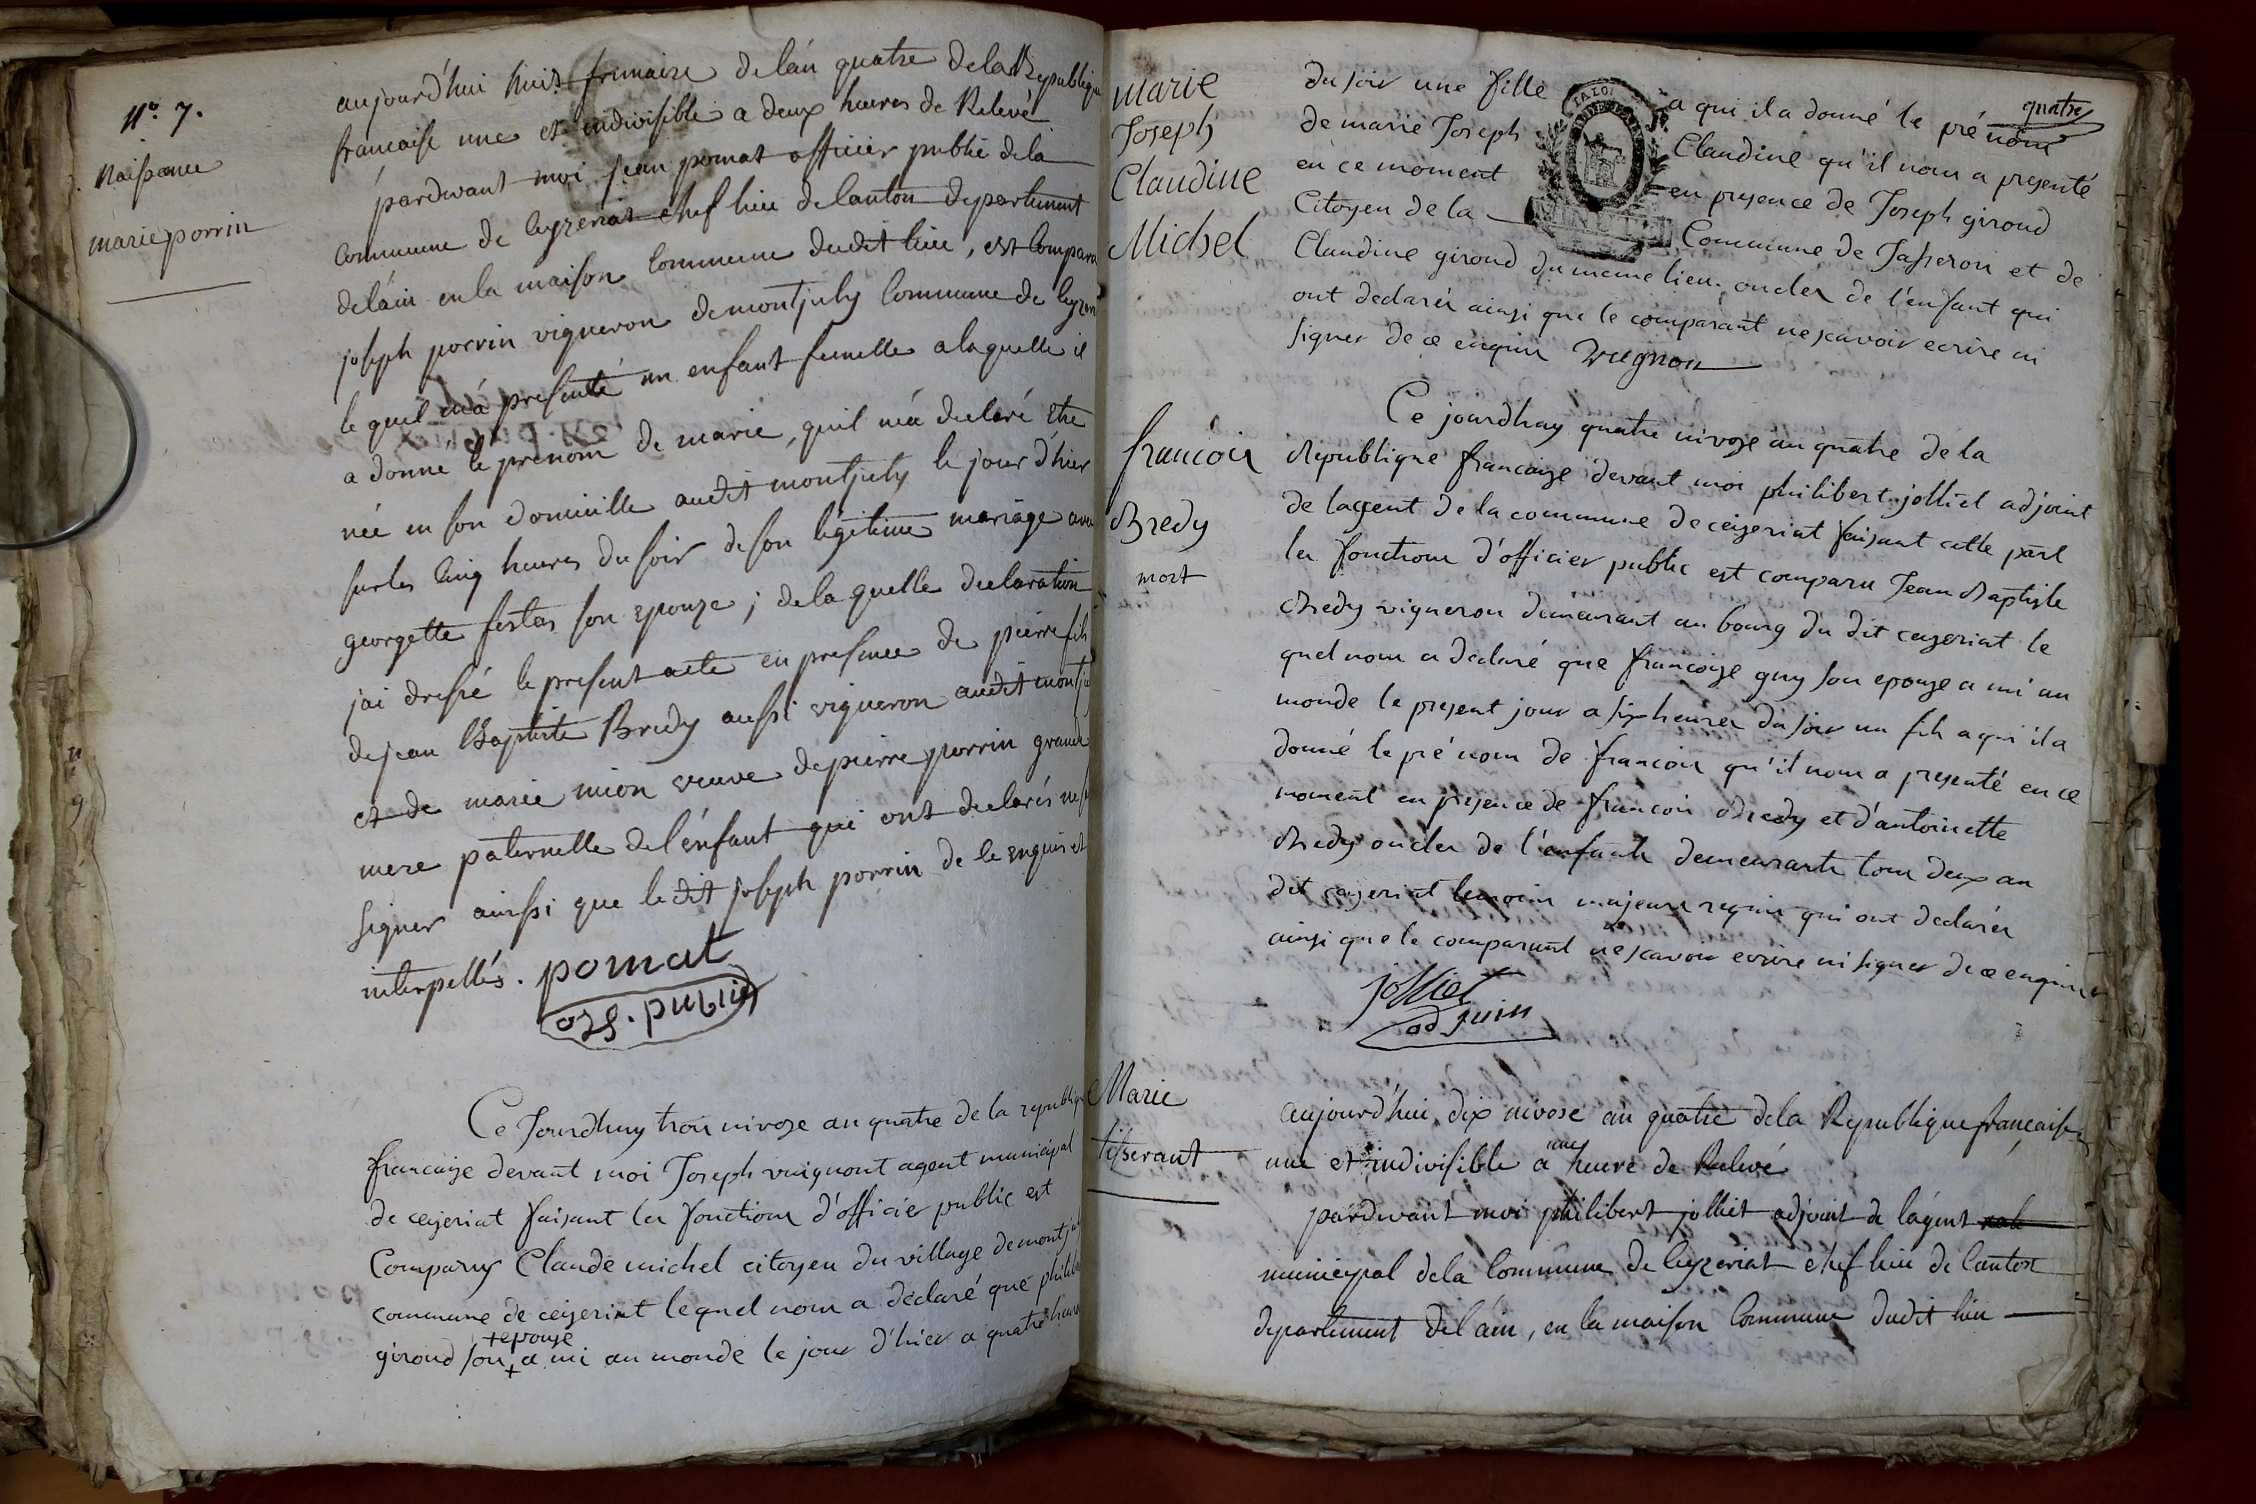 N.o 7.
Naissance
marie porrin
aujourd'hui huit frimaire de l'an quatre de la Republique
francaise une et indivisible a deux heures de Relevé
pardevant moi jean pomat officier public de la
Commune de Ceyzeriat chef lieu de Canton departement
de l'ain en la maison Commune dudit lieu, est Comparu
joseph porrin vigneron de montjuly Commune de Ceyzeriat
le quel m'a presenté un enfant femelle a laquelle il
a donné le prenom de marie, qu'il m'a declaré Etre
née en son domicille audit montjuly le jour d'hier
sur les Cinq heures du soir de son legitime mariage avec
georgette festas son Epouze; de la quelle declaration
j'ai dressé le present acte en presence de pierre fils
de jean Baptiste Bredy aussi vigneron audit montjuly
et de marie mion veuve de pierre porrin grand
mere paternelle de l'enfant qui ont declarés ne
signer ainssi que ledit joseph porrin de ce enquis et
interpellés. pomat
off. public
Ce Jourdhuy trois nivoze an quatre de la republique
francaize devant moi Joseph vuignont agent municipal
de ceyzeriat faisant les fonctions d'officier public est
Comparuy Claude michel citoyen du village de montjuly
commune de ceyzeriat lequel nous a declaré que philiberte
+ epouze
giroud son + a mi au monde le jour d'hier a quatre heures
quatre
marie
Joseph
Claudine
Michel
LA LOI
du soir une fille a qui il a donné le pré nom
de marie Joseph Claudine qu'il nous a presenté
en ce moment en presence de Joseph giroud
Citoyen de la Commune de Jasseron et de
Claudine giroud du meme lieu oncles de l'enfant qui
ont declarés ainsi que le comparant ne scavoir ecrire ni
signer de ce enquis vuignon
francois
Bredy
mort
Ce jourdhuy quatre nivoze an quatre de la
Republique francaize devant moi philibert jolliet adjoint
de lagent de la commune de ceizeriat faisant cette part
les fonctions d'officier public est comparu Jean Baptiste
Bredy vigneron demeurant au bourg du dit ceyzeriat le
quel nous a declaré que francoize guy son epouze a mi au
monde le present jour a six heures du soir un fils a qui il a
donné le pré nom de francois qu'il nous a presenté en ce
moment en presence de francois Bredy et d'antoinette
Bredy oncles de l'enfant demeurants tous deux au
dit ceyzeriat temoins majeurs requis qui ont declarés
ainsi que le comparant ne scavoir ecrire ni signer de ce enquis
jolliet
adjoin
Marie
tisserant
aujourd'hui dix nivose an quatre de la Republique francaise
une et indivisible a une heure de Relevé
pardevant moi philibert jolliet adjoint de l'agent
municipal de la Commune de Ceyzeriat chef lieu de Canton
departement de l'ain, en la maison Commune dudit lieu